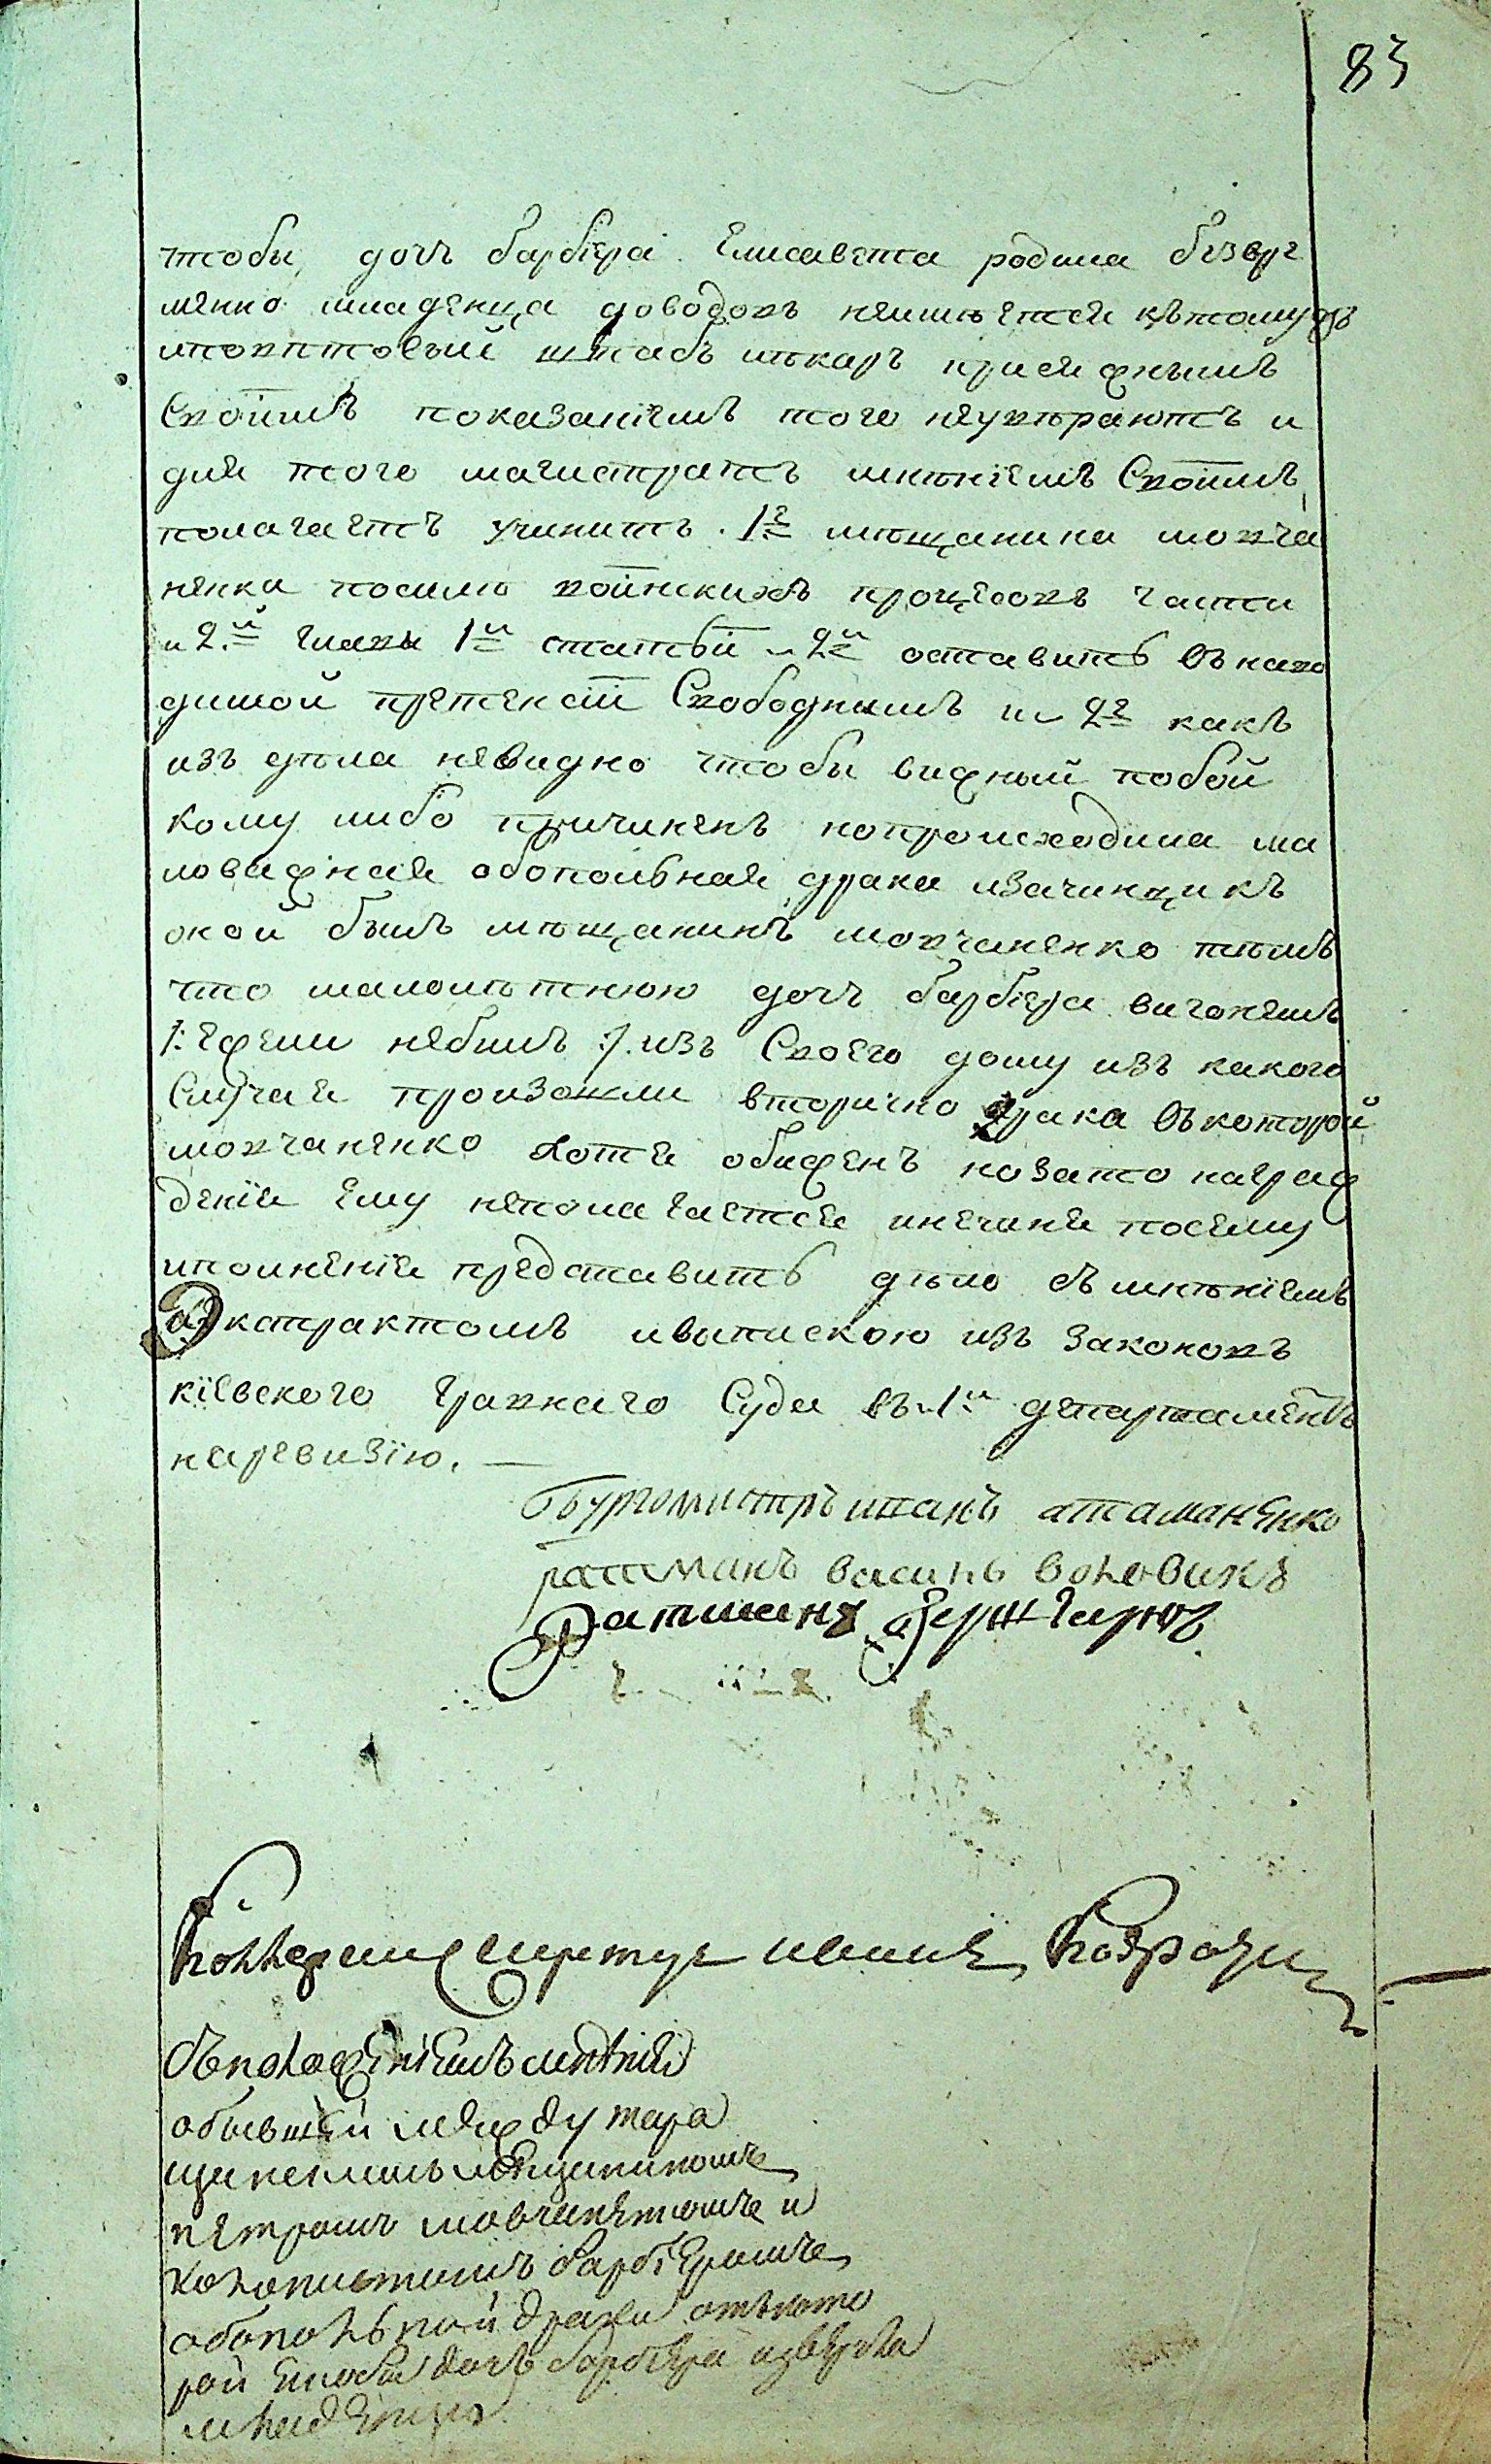 83
чтобы, дочъ барбіера Елисавета родила безвре
менно младенца доводовъ неимѣется кътому жъ
иповитовый штабъ лѣкаръ присяжнымъ
Своимъ показаніемъ того неутверждаютъ и
для того магистратъ мнѣніемъ Своимъ
полагаетъ учинитъ. 1е мѣщанина мовча
ненка посилѣ воинскихъ процесовъ части
и 2.й главы 1й статьи и 2й оставитъ въ наво
димой претенсіи Свободнимъ и 2е какъ
изъ дѣла невидно чтобы важный побой
кому либо причиненъ нопроисходила ма
ловажная обопольная драка изачинщикъ
оной былъ мѣщанинъ мовчаненко тѣмъ
что малолѣтнюю дочъ барбіера вигонялъ
/: ежели небилъ :/ изъ Своего дому изъ какого
Случая произошли вторично драка въкоторой
мовчаненко хотя обиженъ нозато награж
денія Ему неполагается инечиня посему
исполненія представитъ дѣло съмнѣніемъ
Экстрактомъ ивыпискою изъ законовъ
кіевского главнаго Суда въ 1й департаментъ
наревизію. —
Бургомистръ иванъ атаманенко
ратманъ василь воловикъ
Ратманъ
иванъ
съположеніемъ мнѣнія
обывшей между тара
щанскимъ мѣщаниномъ
петромъ мовчаненкомъ и
колопистимъ барбіеромъ
обопольной драки отъкото
рой якобы дочъ барбіера извергла
младенца